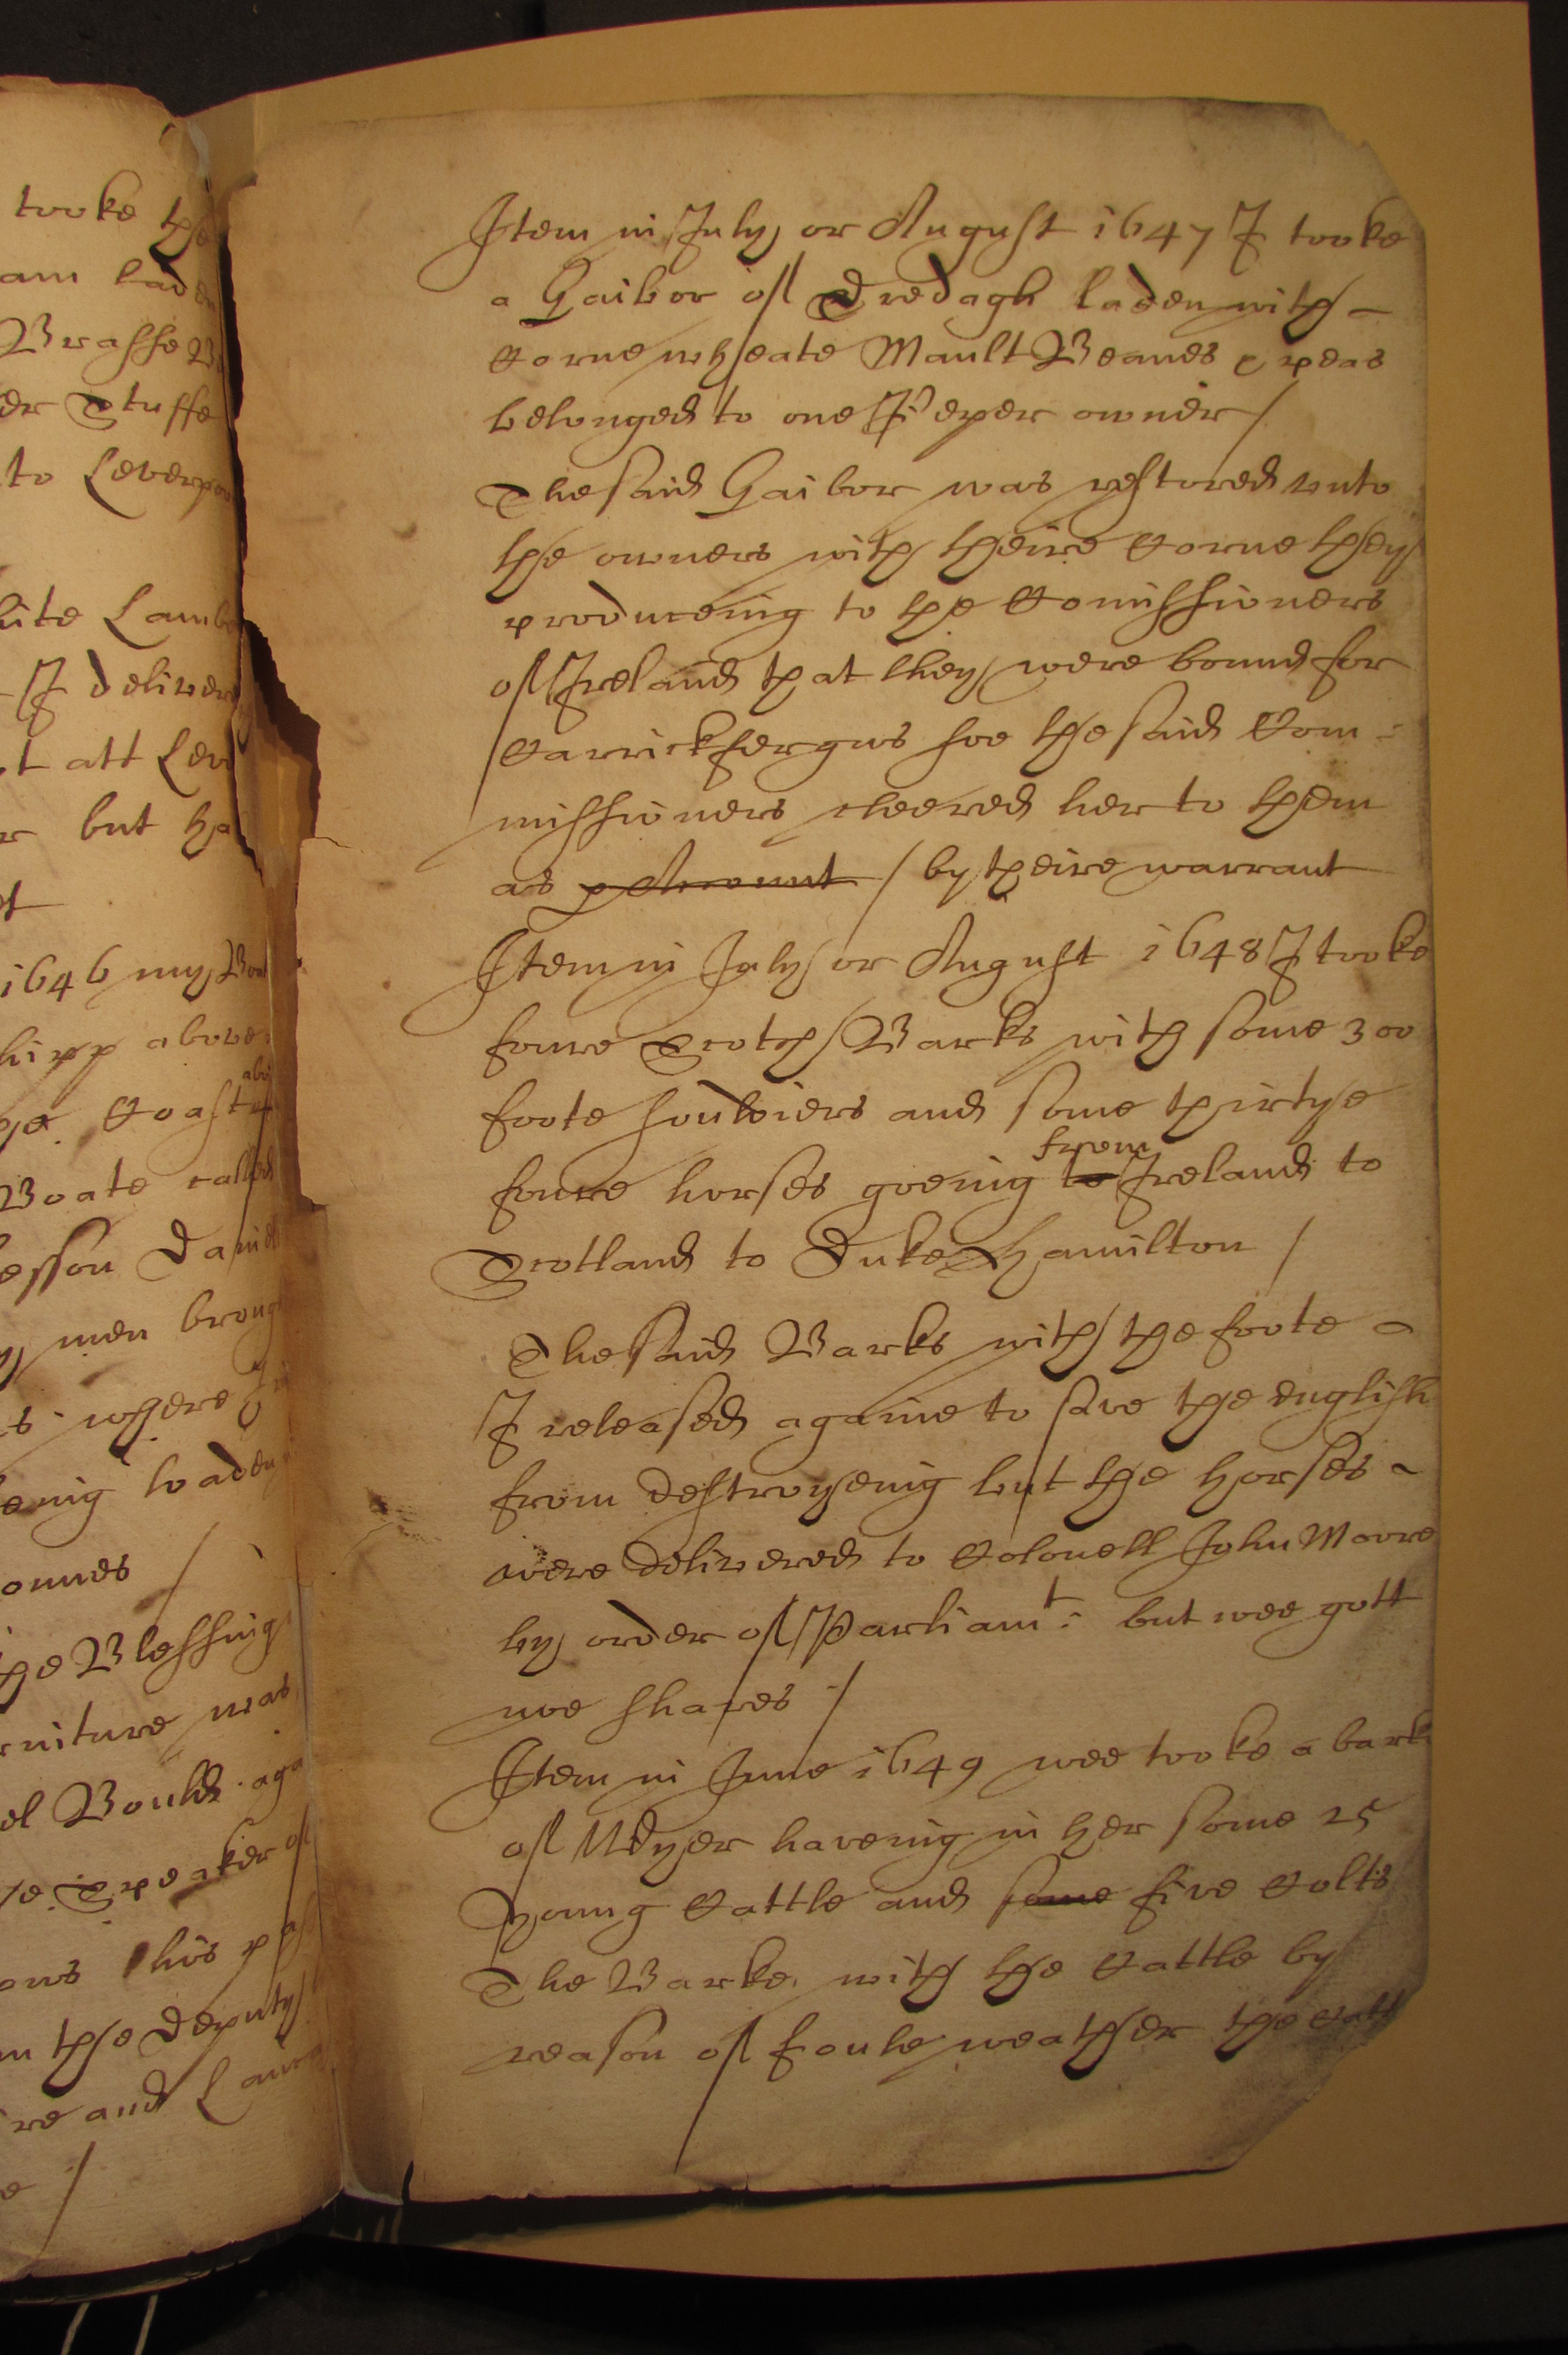 tooke the
am laden
Brasse
er Stuffe
to Leverpoo
ite Lambe
I deliver
t att Leve
r but ha
1646 my Boat
hipp above
ge Coast
Boate called
esson Daniel
men broug
s where
eing loaden
onnes /
the Blessing
rniture was
el Bould aga
e Speaker of
ows his
m the Deputy
re and Lanc
e /
Item in July or August 1647 I tooke
a Gaibor of Dredagh laden with
Corne wheate Mault Beanes & peas
belonged to one Peper owner /
The said Gaibor was restored unto
the owners with theire Corne they
produceing to the Comissioners
of Ireland that they were bound for
Carrickfergus soe the said Com =
missioners cleered her to them
as p Account / by theire warrant
Item in July or August 1648 I tooke
foure Scotch Barks with some 300
foote souldiers and some thirtye
foure horses goeing to from Ireland to
Scotland to Duke Hamilton /
The said Barks with the foote
I released againe to save the English
from destroyeing but the horses
were delivered to Colonell John Moore
by order of Parliamt : but wee gott
noe shares /
Item in June 1649 wee tooke a bark
of Wyer haveing in her some 25
Young Cattle and some five Colts
The Barke with the Cattle by
reason of foule weather the Catt